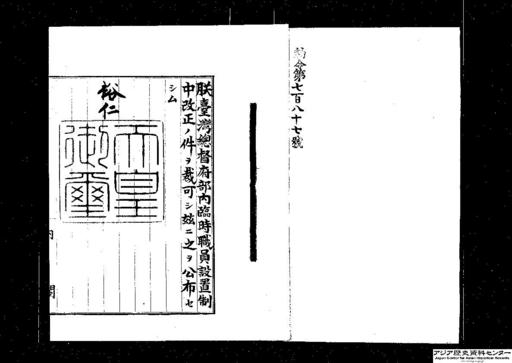 勅令第七百八十七號
朕臺灣總督府部內臨時職員設置制
中改正ノ件ヲ裁可シ玆ニ之ヲ公布セ
シム
裕仁
天皇
御璽
內閣
アジア歴史資料センター
Japan Center for Asian Historical Records